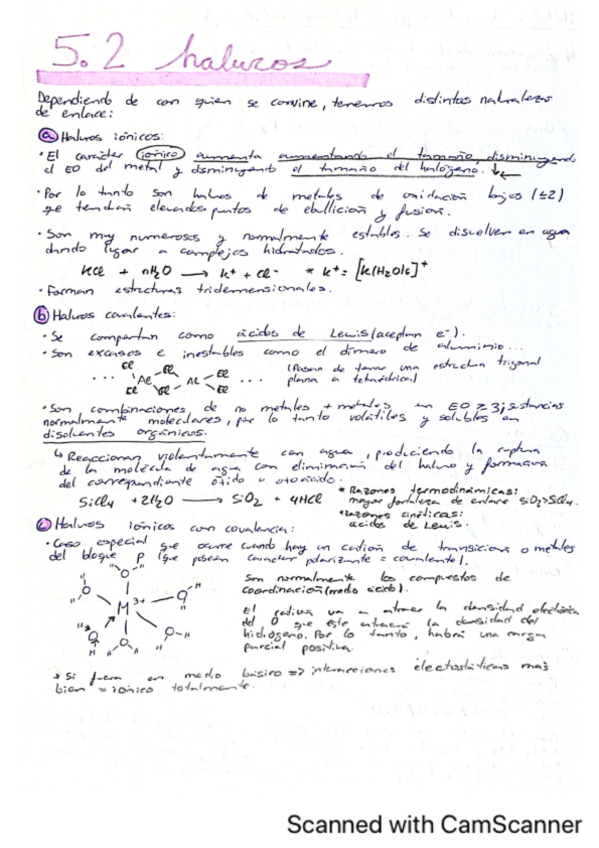 5.2 haluros
Dependiendo de con quien se convine, tenemos distintas naturalezas
de enlace:
a Haluros iónicos:
• El carácter iónico aumenta aumentando el tamaño, disminuyendo
el EO del metal y disminuyendo el tamaño del halógeno.
• Por lo tanto son haluros de metales de oxidación bajos (≤2)
que tendrán elevados puntos de ebullición y fusión.
• Son muy numerosos y normalmente estables. Se disuelven en agua
dando lugar a complejos hidratados.
KCl + nH2O → K+ + Cl- * K+ = [K(H2O)6]+
• Forman estructuras tridimensionales.
b Haluros covalentes:
• Se comportan como ácidos de Lewis (aceptan e-).
• Son escasos e inestables como el dímero de aluminio...
Cl Cl Cl
... Al Al ...
Cl Cl Cl
(Pasan de tener una estructura trigonal
plana a tetraédrica)
• Son combinaciones de no metales + metales en EO ≥ 3; sustancias
normalmente moleculares, por lo tanto volátiles y solubles en
disolventes orgánicos.
↳ Reaccionan violentamente con agua, produciendo la ruptura
de la molécula de agua con eliminación del haluro y formación
del correspondiente óxido u oxoácido.
SiCl4 + 2H2O → SiO2 + 4HCl
* Razones termodinámicas:
mayor fortaleza de enlace SiO2>SiCl4.
* Razones cinéticas:
ácidos de Lewis.
c Haluros iónicos con covalencia:
• Caso especial que ocurre cuando hay un catión de transición o metales
del bloque p (que posean carácter polarizante = covalente).
M3+
Son normalmente los compuestos de
coordinación (medio ácido).
El catión va a atraer la densidad electrónica
del O que este extraerá la densidad del
hidrógeno. Por lo tanto, habrá una carga
parcial positiva.
Si fuera en medio básico => interacciones electrostáticas mas
bien = iónico totalmente.
Scanned with CamScanner